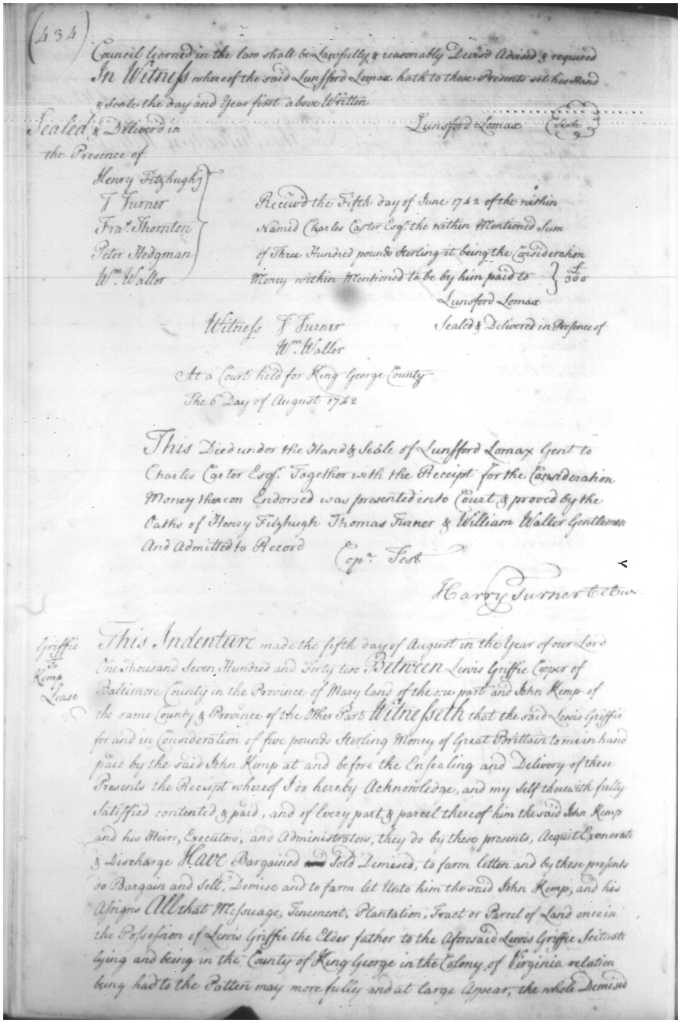 (434)
Council learned in the law shall be Lawfully & reasonably Devisd Advisd & required
In Witness whereof the said Lunsford Lomax hath to these Presents set his Hand
& Seale the day and Year first above Written
Sealed & Deliverd in Lunsford Lomax Seale
the Presence of
Henry Fitzhugh
T Turner Receivd the Fifth day of June 1742 of the within
Fras. Thornton Named Charles Carter Esqr. the within Mentioned Sum
Peter Hedgman of Three Hundred pounds Sterling it being the Consideration
Wm. Waller Money within Mentioned to be by him paid to £300
Lunsford Lomax
Witness T Turner Sealed & Delivered in Presence of
Wm. Waller
At a Court held for King George County
The 6 Day of August 1742
This Deed under the Hand & Seale of Lunsford Lomax Gent to
Charles Carter Esqr. Together with the Receipt for the Consideration
Money thereon Endorsed was presented into Court & proved by the
Oaths of Henry Fitzhugh Thomas Turner & William Waller Gentlemen
And Admitted to Record
Copa. Test
Harry Turner
This Indenture made the fifth day of August in the Year of our Lord
Griffie
to
Kemp
Lease
One Thousand Seven Hundred and Forty two Between Lewis Griffie Cooper of
Baltimore County in the Province of Mary land of the one part and John Kemp of
the same County & Province of the Other Part Witnesseth that the said Lewis Griffie
for and in Consideration of five pounds Sterling Money of Great Brittain to me in hand
paid by the said John Kemp at and before the Ensealing and Delivery of these
Presents the Receipt whereof I do hereby Acknowledge, and my Self therewith fully
Satisfied contented & paid, and of Every part & parcel thereof him the said John Kemp
and his Heirs, Executors, and Administrators, they do by these presents, Acquit Exonerate
& Discharge Have Bargained Sold Demised, to farm letten and by these presents
do Bargain and Sell, Demise and to farm let Unto him the said John Kemp, and his
Assigns All that Messuage, Tenement, Plantation, Tract or Parcel of Land once in
the Possession of Lewis Griffie the Elder father to the Aforesaid Lewis Griffie Scituate
lying and being in the County of King George in the Colony of Virginia relation
being had to the Patten may more fully and at large Appear, the whole Demisd